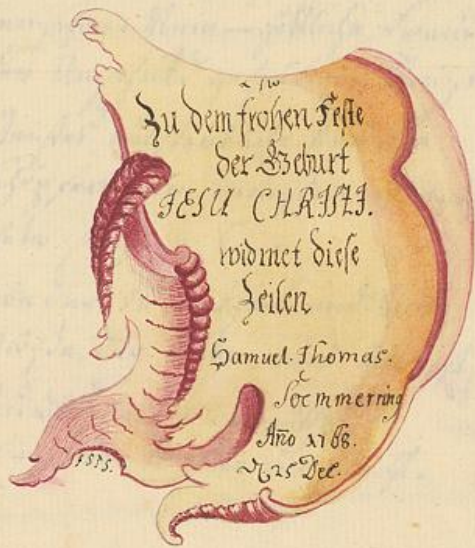 Zu dem frohen Feste
der Geburt
JESU CHRISTI.
widmet diese
Zeilen
Samuel Thomas.
Soemmerring
Año 1768.
25 Dec.